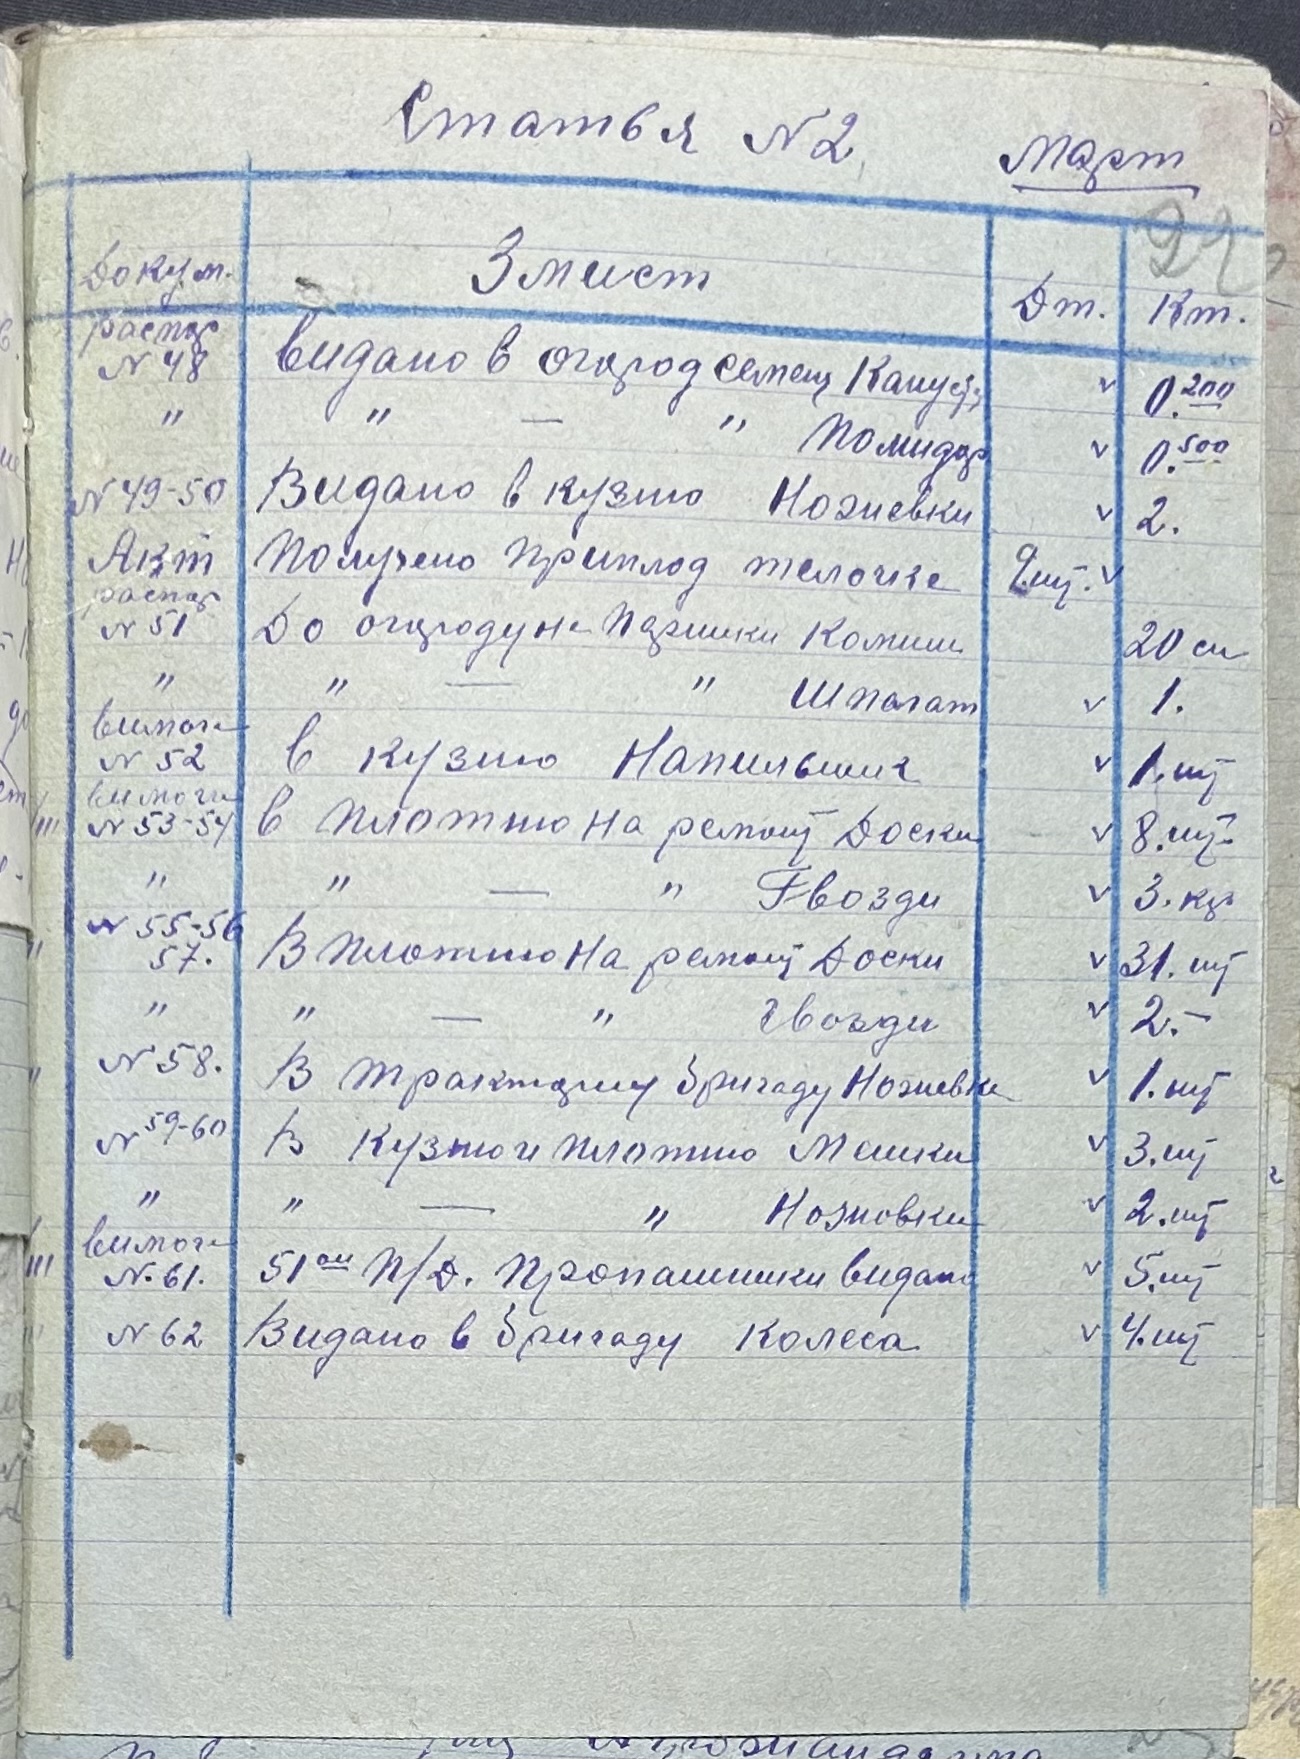 Статья N2
Март
92
Докум. Змист Дт. Кт.
распор
N 48 Видано в огород семец Капусти v 0.200
" " — " Помидор v 0.500
N 49-50 Видано в кузню Ножевки v 2.
Акт Получено приплод телочке 2 шт. v
распор
N 51 До огороду на Парники Комиш 20 сн
" " — " Шпагат v 1.
вимога
N 52 в кузню Напильник v 1. шт
вимоги
N 53-54 в плотню на ремонт Доски v 8. шт
" " — " Гвозди v 3. кг
N 55-56
57. В плотню на ремонт Доски v 31. шт
" " — " Гвозди v 2.-
N 58. В тракторну бригаду Ножевки v 1. шт
N 59-60 В Кузню и плотню Мешки v 3. шт
" " — " Ножовки v 2. шт
вимога
N. 61. 51ой П/Д. Пропашники видано v 5. шт
N 62 Видано в бригаду Колеса v 4. шт